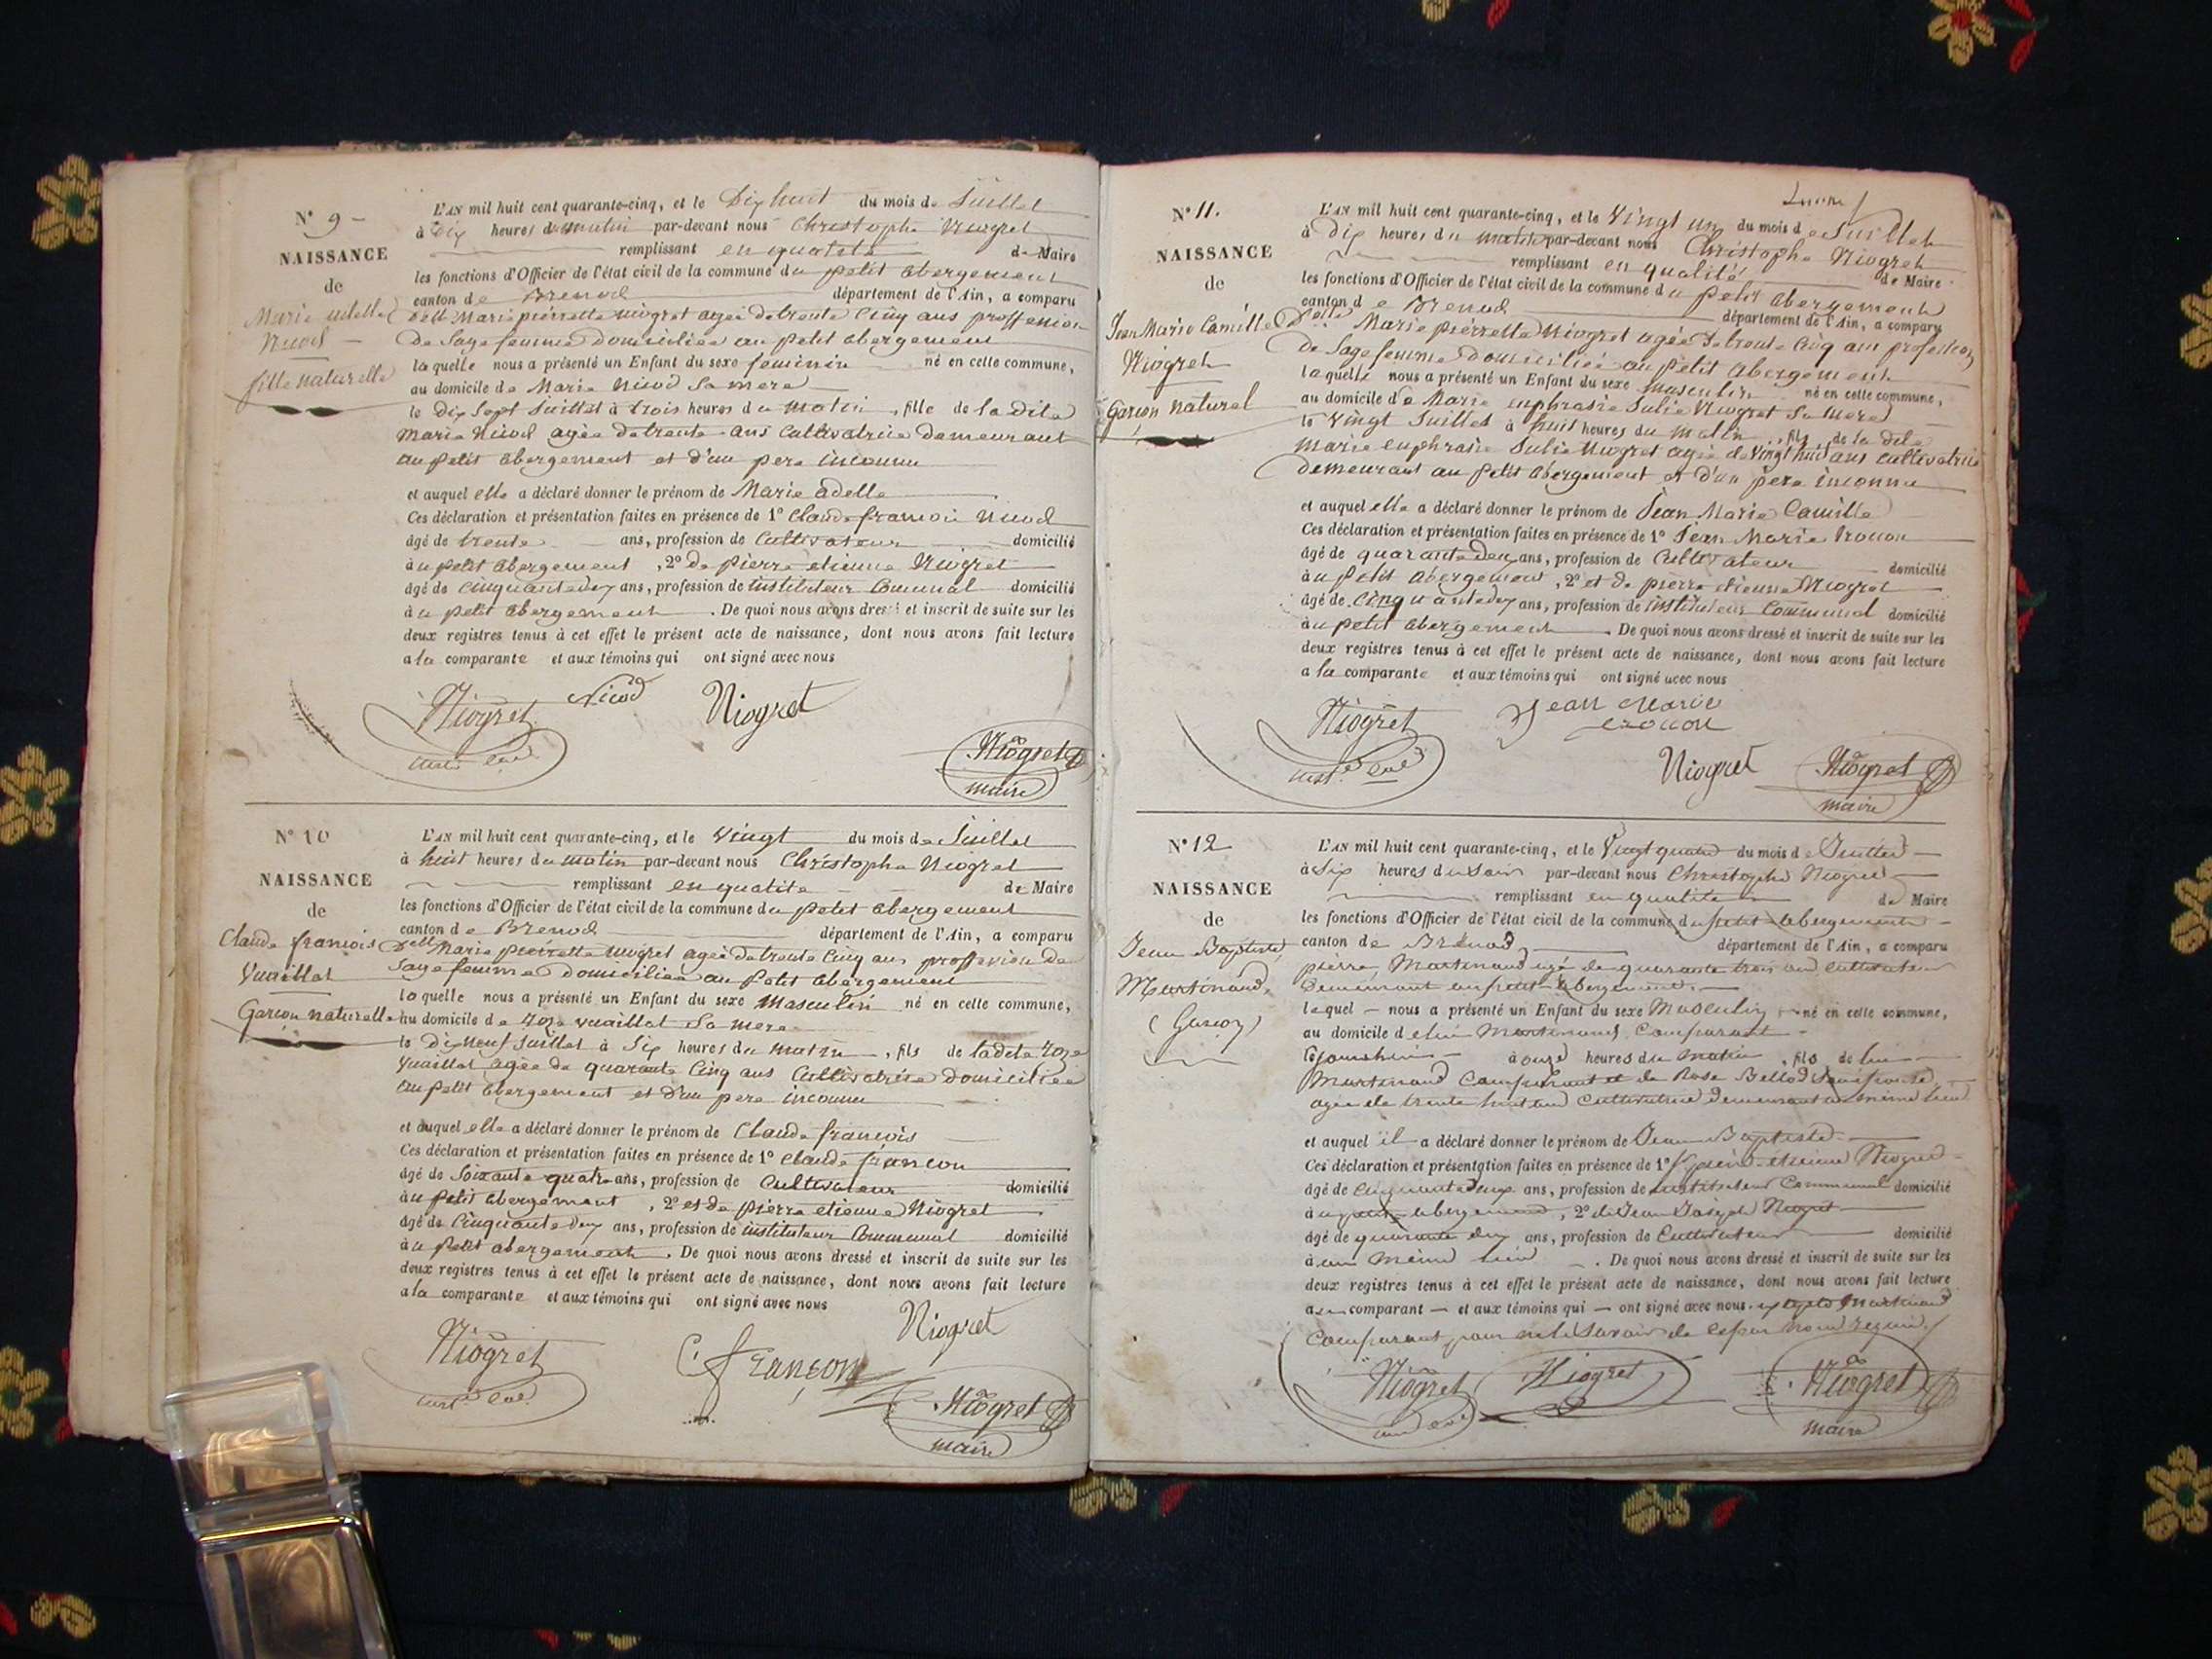 N° 9 –
NAISSANCE
de
Marie adelle
Nicod –
fille naturelle
L'AN mil huit cent quarante-cinq, et le Dix huit du mois de Juillet
à dix heures du matin par-devant nous Christophe Niogret
remplissant en qualité de Maire
les fonctions d'Officier de l'état civil de la commune du petit abergement
canton de Brenod département de l'Ain, a comparu
Delle Marie pierrette niogret agée de trente Cinq ans proffession
De Sage femme Domiciliée au petit abergement
laquelle nous a présenté un Enfant du sexe feminin né en cette commune,
au domicile de Marie Nicod Sa mere
le dix Sept Juillet à trois heures du matin , fille de la dite
Marie Nicod agée de trente ans Cultivatrice demeurant
au petit abergement et d'un pere inconnu
et auquel elle a déclaré donner le prénom de Marie adelle
Ces déclaration et présentation faites en présence de 1° Claude francois Nicod
âgé de trente ans, profession de Cultivateur domicilié
à au petit abergement , 2° de pierre etienne Niogret
âgé de Cinquante deux ans, profession de instituteur Comunal domicilié
à au petit abergement . De quoi nous avons dressé et inscrit de suite sur les
deux registres tenus à cet effet le présent acte de naissance, dont nous avons fait lecture
a la comparante et aux témoins qui ont signé avec nous
Niogret Nicod Niogret
Niogret
maire
N° 10
NAISSANCE
de
Claude francois
Vuaillat
Garçon naturelle
L'AN mil huit cent quarante-cinq, et le Vingt du mois de Juillet
à huit heures du matin par-devant nous Christophe Niogret
remplissant en qualité de Maire
les fonctions d'Officier de l'état civil de la commune du petit abergement
canton de Brenod département de l'Ain, a comparu
Delle Marie pierrette niogret agée de trente Cinq ans proffession de
Sage femme domiciliée au Petit abergement
laquelle nous a présenté un Enfant du sexe Masculin né en cette commune,
au domicile de Roze vuaillat Sa mere
le dixneuf Juillet à Six heures du matin , fils de la dite Roze
Vuaillat agée de quarante Cinq ans Cultivatrice domiciliée
au petit abergement et d'un pere inconnu
et auquel elle a déclaré donner le prénom de Claude francois
Ces déclaration et présentation faites en présence de 1° Claude francon
âgé de Soixante quatre ans, profession de Cultivateur domicilié
à au petit abergement , 2° et de pierre etienne Niogret
âgé de Cinquante deux ans, profession de instituteur Communal domicilié
à au petit abergement . De quoi nous avons dressé et inscrit de suite sur les
deux registres tenus à cet effet le présent acte de naissance, dont nous avons fait lecture
a la comparante et aux témoins qui ont signé avec nous
Niogret
Niogret C. françon
Niogret
maire
N° 11.
NAISSANCE
de
Jean Marie Camille
Niogret
Garçon naturel
L'AN mil huit cent quarante-cinq, et le Vingt un du mois de Juillet
à dix heures du matin par-devant nous Christophe Niogret
remplissant en qualité de Maire
les fonctions d'Officier de l'état civil de la commune du petit abergement
canton de Brenod département de l'Ain, a comparu
Delle Marie pierrette Niogret agée de trente Cinq ans profession
De Sage femme domiciliée au petit abergement
laquelle nous a présenté un Enfant du sexe masculin né en cette commune,
au domicile de Marie euphrasie Julie Niogret Sa Mere
le Vingt Juillet à huit heures du matin , fils de la dite
marie euphrasie Julie Niogret agée de vingt huit ans cultivatrice
demeurant au petit abergement et d'un père inconnu
et auquel elle a déclaré donner le prénom de Jean Marie Camille
Ces déclaration et présentation faites en présence de 1° Jean Marie Trocon
âgé de quarante deux ans, profession de Cultivateur domicilié
à au petit abergement , 2° et de pierre etienne Niogret
âgé de Cinquante deux ans, profession de instituteur Communal domicilié
à au petit abergement . De quoi nous avons dressé et inscrit de suite sur les
deux registres tenus à cet effet le présent acte de naissance, dont nous avons fait lecture
a la comparante et aux témoins qui ont signé avec nous
Niogret Jean Marie
Niogret Niogret
maire
N° 12
NAISSANCE
de
Jean Baptiste
Martinand.
(Garçon)
L'AN mil huit cent quarante-cinq, et le Vingt quatre du mois de Juillet
à Six heures du Soir par-devant nous Christophe Niogret
remplissant en qualité de Maire
les fonctions d'Officier de l'état civil de la commune du petit abergement
canton de Brénod département de l'Ain, a comparu
pierre Martinand agé de quarante trois ans cultivateur
Demeurant au petit abergement.
lequel – nous a présenté un Enfant du sexe Masculin né en cette commune,
au domicile de lui Martinand Comparant
à onze heures du matin , fils de lui
Martinand Comparant et de Rose Bellod Son épouse,
agée de trente huit ans Cultivatrice demeurant au même lieu
et auquel il a déclaré donner le prénom de Jean Baptiste
Ces déclaration et présentation faites en présence de 1° pierre etienne Niogret
âgé de Cinquante deux ans, profession de instituteur Communal domicilié
à au petit abergement , 2° de Jean Joseph Niogret
âgé de quarante deux ans, profession de Cultivateur domicilié
à au même lieu . De quoi nous avons dressé et inscrit de suite sur les
deux registres tenus à cet effet le présent acte de naissance, dont nous avons fait lecture
au comparant – et aux témoins qui – ont signé avec nous, excepté Martinand
Comparant pour ne le Savoir de ce requis
Niogret Niogret Niogret
maire